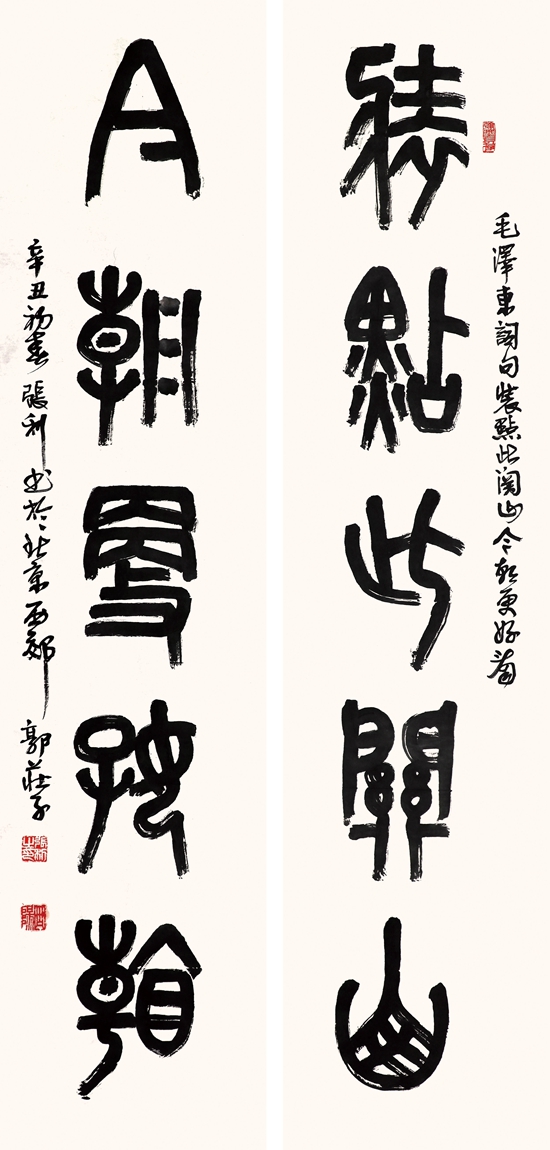 毛澤東詞句裝點此關山今朝更好看
裝點此關山
今朝更好看
辛丑初春張利書於北京西郊郭莊子